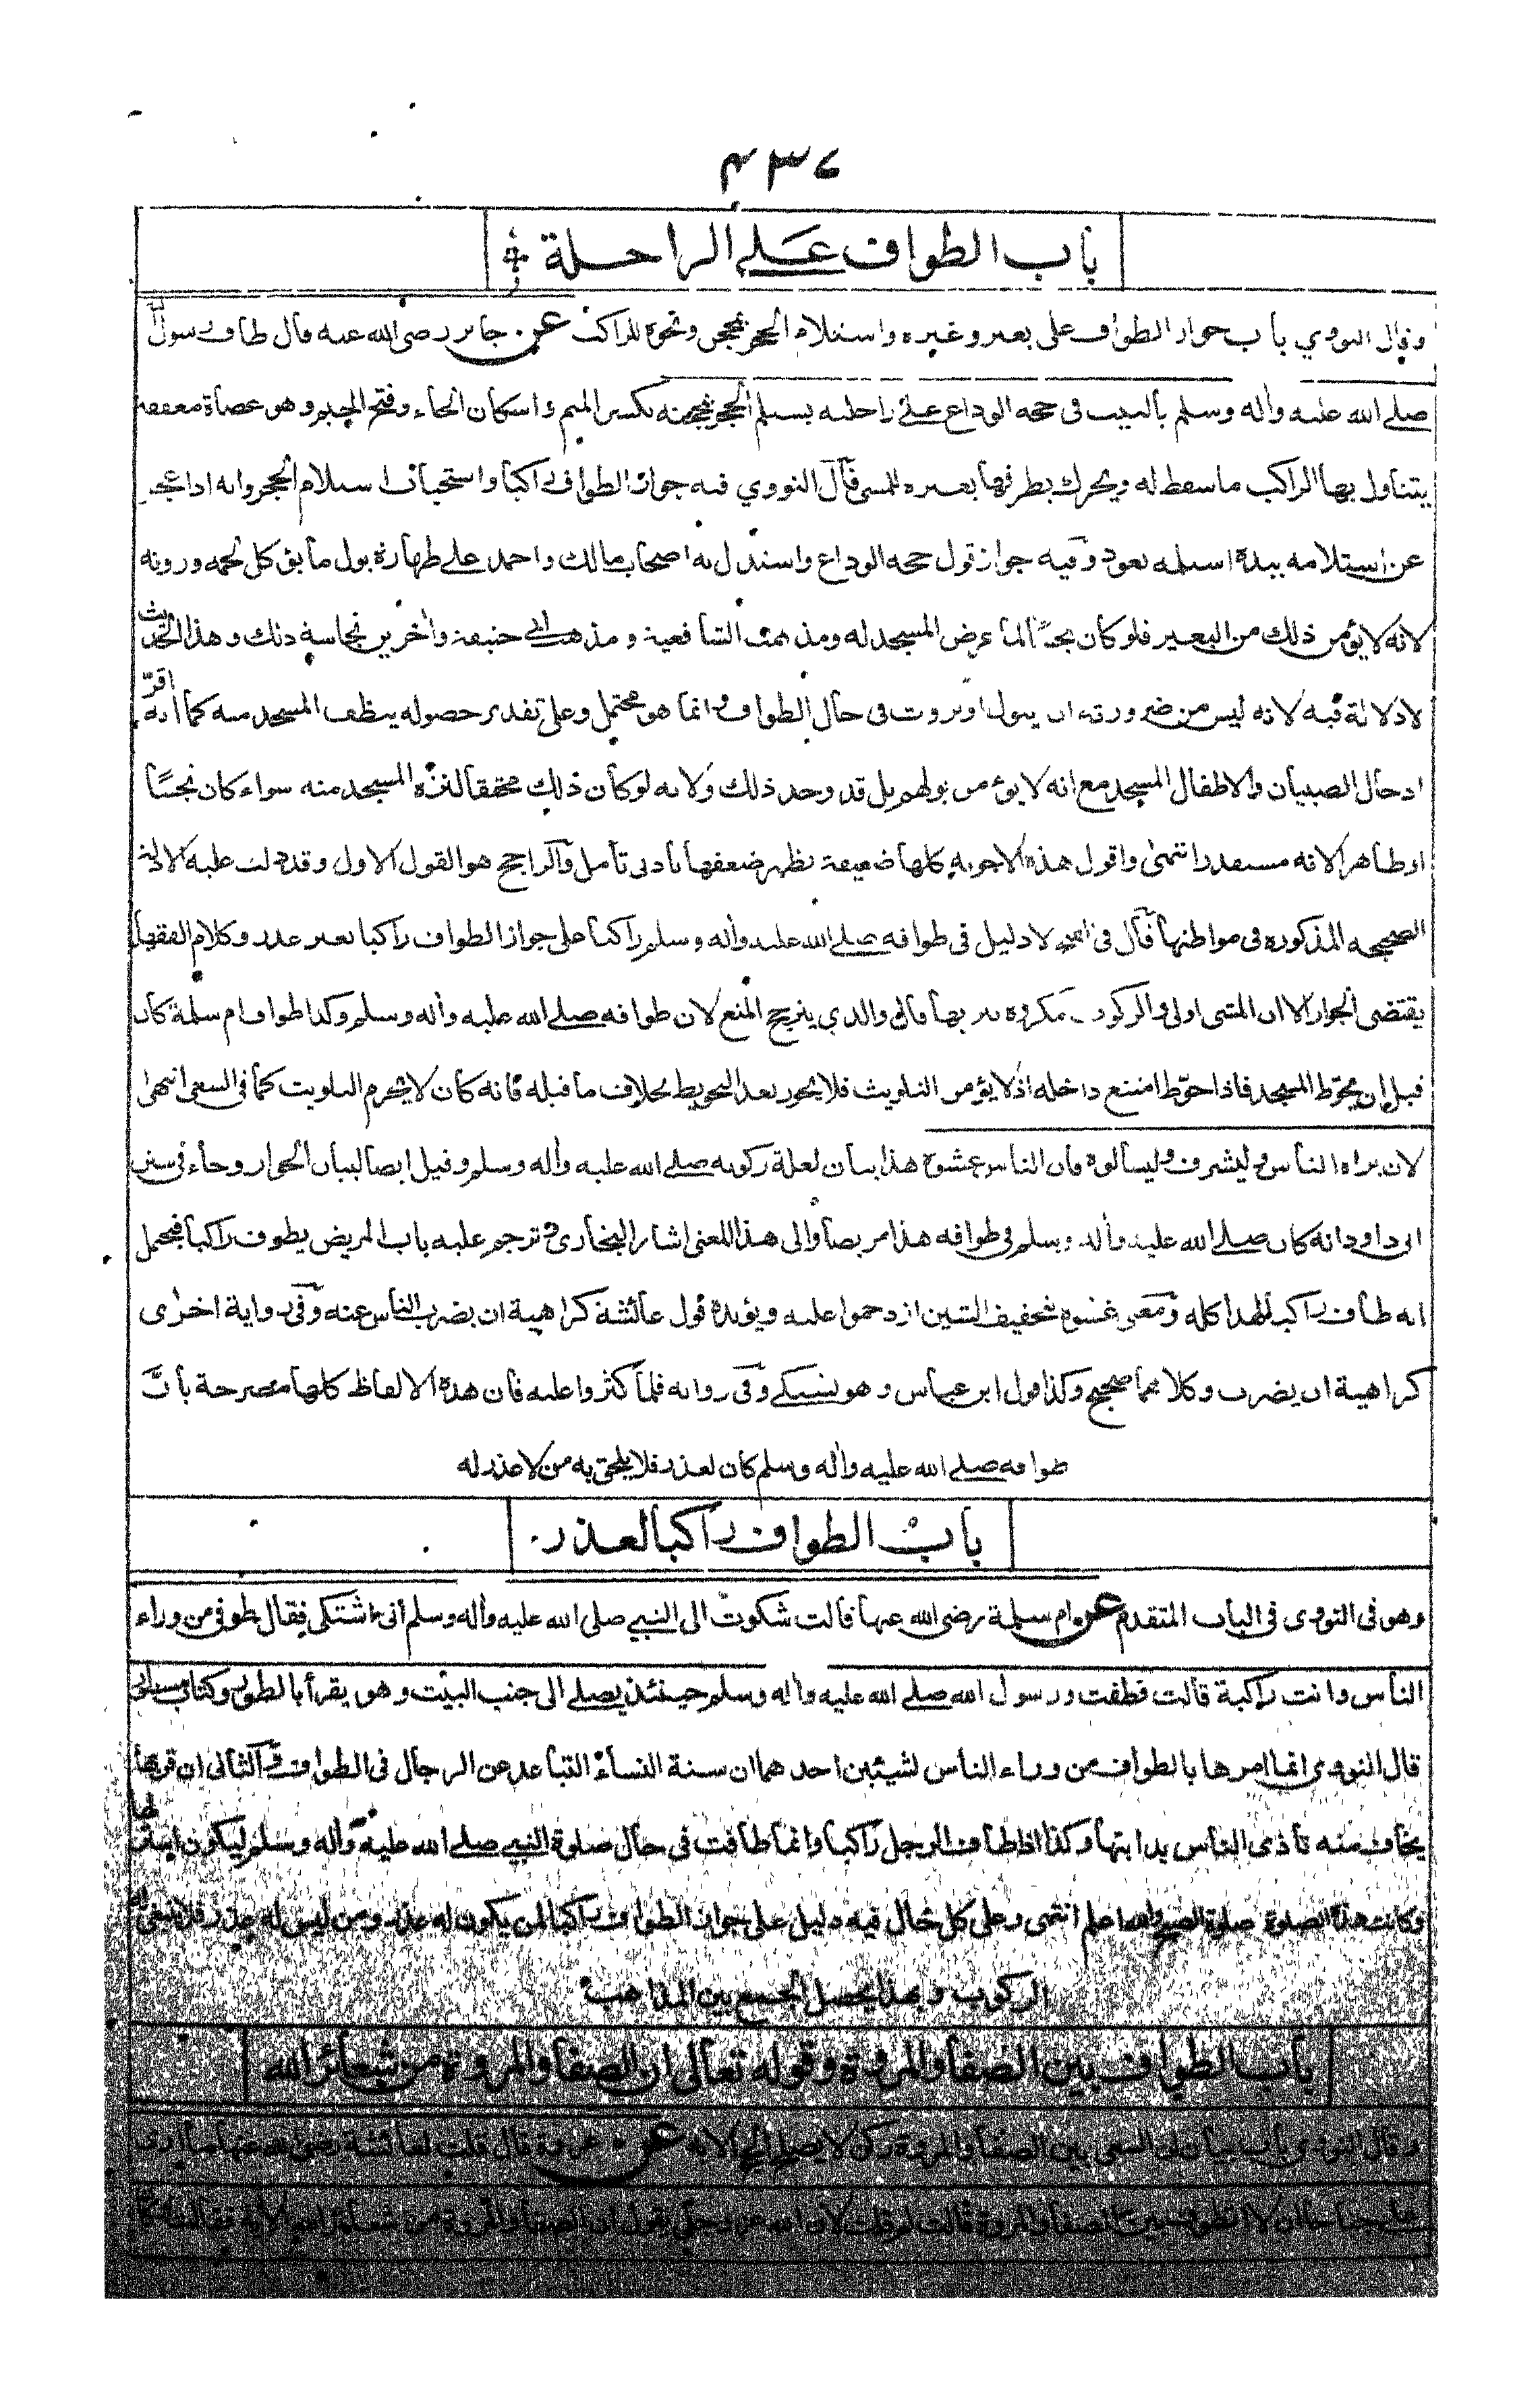 باب الطواف على الراحلة
وقال النووي باب جواز الطواف على بعير وغيره واستلام الحجر بمحجن ونحوه للراكب عن جابر رضى الله عنه قال طاف رسول الله
صلى الله عليه واٰله وسلم بالبيت فى حجة الوداع على راحلته يستلم الحجر بمحجنه بكسر الميم واسكان الحاء وفتح الجيم وهو عصاة معقفة
يتناول بها الراكب ما سقط له ويحرك بطرفها بعيره للمشى قال النووي فيه جواز الطواف راكبا واستحباب استلام الحجر وانه اذا عجز
عن استلامه بيده استلمه بعود وفيه جواز قول حجة الوداع واستدل به اصحاب مالك واحمد على طهارة بول ما يؤكل لحمه وروثه
لانه لا يؤمن ذلك من البعير فلو كان نجسًا لما عرض المسجد له ومذهب الشافعية ومذهب ابي حنيفة واٰخرين نجاسة ذلك وهذا الحديث
لا دلالة فيه لانه ليس من ضرورته ان يبول او يروث فى حال الطواف وانما هو محتمل وعلى تقدير حصوله ينظف المسجد منه كما انه اقرّ
ادخال الصبيان والاطفال المسجد مع انه لا يؤمن بولهم بل قد وجد ذلك ولانه لو كان ذلك محققا لنزه المسجد منه سواء كان نجسًا
او طاهرا لانه مستقذر انتهىٰ واقول هذه الاجوبة كلها ضعيفة يظهر ضعفها بادنى تأمل والراجح هو القول الاول وقد دلت عليه الادلة
الصحيحة المذكورة فى مواطنها قال فى الفتح لا دليل فى طوافه صلى الله عليه واٰله وسلم راكبا على جواز الطواف راكبا بغير عذر وكلام الفقهاء
يقتضى الجواز الا ان المشى اولى والركوب مكروه تنزيها قال والذي يترجح المنع لان طوافه صلى الله عليه واٰله وسلم وكذا طواف ام سلمة كان
قبل ان يحوّط المسجد فاذا حوّط امتنع داخله اذ لا يؤمن التلويث فلا يجوز بعد التحويط بخلاف ما قبله فانه كان لا يحرم التلويث كما فى السعى انتهىٰ
لان يراه الناس وليشرف وليسألوه فان الناس غشوه هذا بيان لعلة ركوبه صلى الله عليه واٰله وسلم وقيل ايضا لبيان الجواز وجاء فى سنن
ابى داود انه كان صلى الله عليه واٰله وسلم فى طوافه هذا مريضا والى هذا المعنى اشار البخارى وترجم عليه باب المريض يطوف راكبا فيحتمل
انه طاف راكبا لهذا كله ومعنى غشوه بتخفيف الشين ازدحموا عليه ويؤيده قول عائشة كراهية ان يضرب الناس عنه وفى رواية اخرٰى
كراهية ان يصرف وكلاهما صحيح وكذا قول ابن عباس وهو يشتكى وفى رواية فلما كثروا عليه فان هذه الالفاظ كلها مصرحة بانّ
طوافه صلى الله عليه واٰله وسلم كان لعذر فلا يلحق به من لا عذر له
باب الطواف راكبا لعذر
وهو فى النووى فى الباب المتقدم عن ام سلمة رضى الله عنها قالت شكوت الى النبي صلى الله عليه واٰله وسلم انى اشتكى فقال طوفى من وراء
الناس وانت راكبة قالت فطفت ورسول الله صلى الله عليه واٰله وسلم حينئذ يصلى الى جنب البيت وهو يقرأ بالطور وكتاب مسطور
قال النووى انما امرها بالطواف من وراء الناس لشيئين احدهما ان سنة النساء التباعد عن الرجال فى الطواف والثانى ان قربها
يخاف منه تأذى الناس بدابتها وكذا اذا طاف الرجل راكبا وانما طافت فى حال صلوة النبي صلى الله عليه واٰله وسلم ليكون استر لها
وكانت هذه الصلوة صلوة الصبح والله اعلم انتهى وعلى كل حال فيه دليل على جواز الطواف راكبا لمن يكون له عذر ومن ليس له عذر فلا ينبغى له
الركوب وبهذا يحصل الجمع بين المذاهب
باب الطواف بين الصفا والمروة وقوله تعالى ان الصفا والمروة من شعائر الله
وقال النووى باب بيان ان السعى بين الصفا والمروة ركن لا يصح الحج الا به عن عروة قال قلت لعائشة رضى الله عنها ما أرى
على جناحا ان لا اتطوف بين الصفا والمروة قالت لم قلت لان الله عز وجل يقول ان الصفا والمروة من شعائر الله الاٰية فقالت